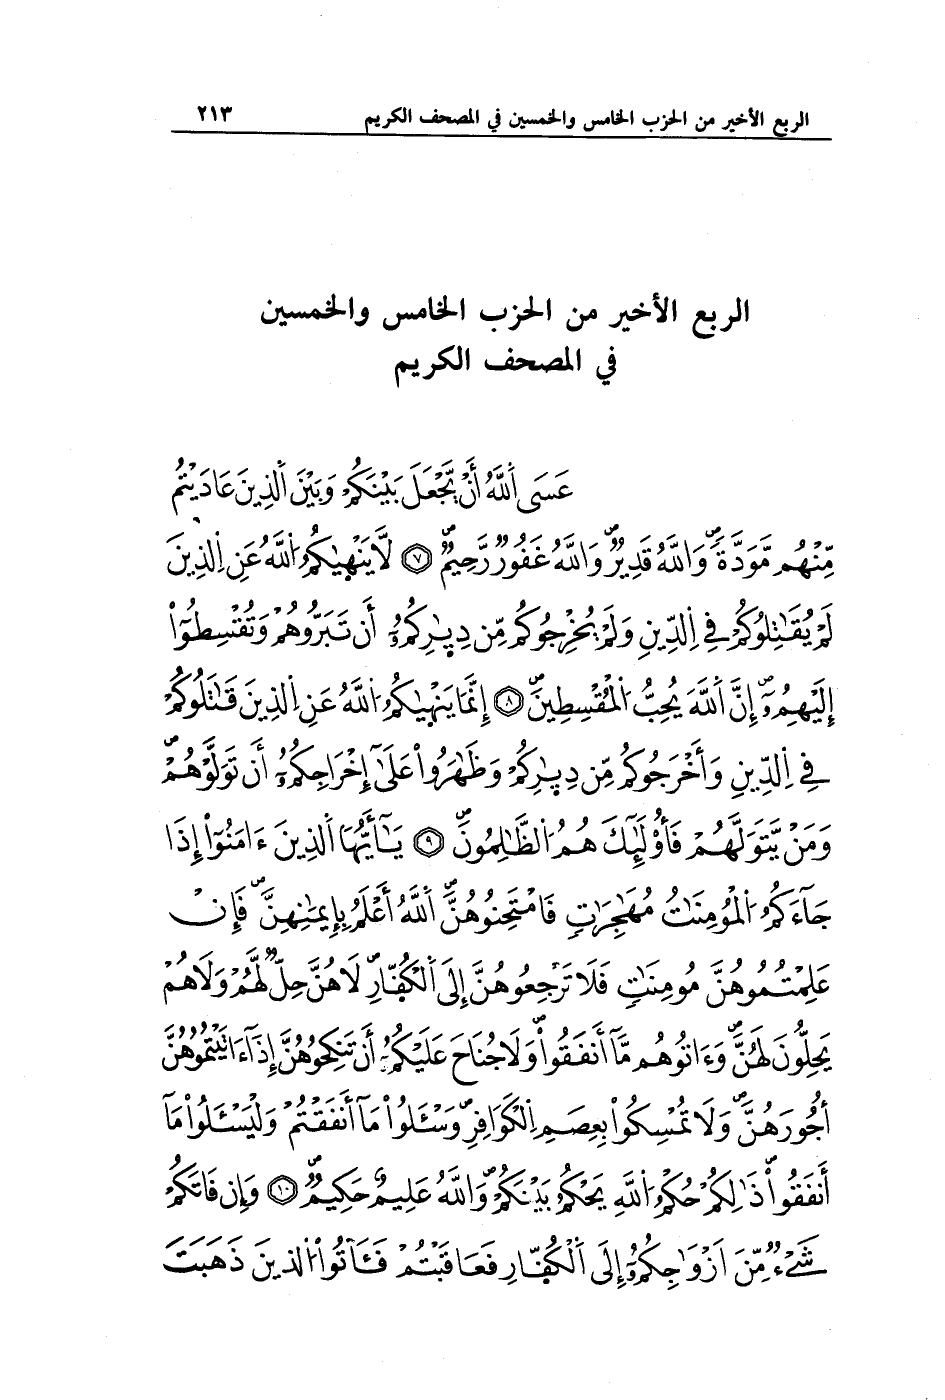 الربع الأخير من الحزب الخامس والخمسين في المصحف الكريم ٢١٣
الربع الأخير من الحزب الخامس والخمسين
في المصحف الكريم
عَسَى اَ۬للَّهُ أَنْ يَّجْعَلَ بَيْنَكُمْ وَبَيْنَ اَ۬لذِينَ عَادَيْتُم
مِّنْهُم مَّوَدَّةٗ وَاللَّهُ قَدِيرٞ وَاللَّهُ غَفُورٞ رَّحِيمٞ ٧ لَّا يَنْهٜىٰكُمُ اُ۬للَّهُ عَنِ اِ۬لذِينَ
لَمْ يُقَٰتِلُوكُمْ فِے اِ۬لدِّينِ وَلَمْ يُخْرِجُوكُم مِّن دِيٰٜرِكُمُۥٓ أَن تَبَرُّوهُمْ وَتُقْسِطُوٓاْ
إِلَيْهِمُۥٓ إِنَّ اَ۬للَّهَ يُحِبُّ اُ۬لْمُقْسِطِينَ ٨ إِنَّمَا يَنْهٜىٰكُمُ اُ۬للَّهُ عَنِ اِ۬لذِينَ قَٰتَلُوكُمْ
فِے اِ۬لدِّينِ وَأَخْرَجُوكُم مِّن دِيٰٜرِكُمْ وَظَٰهَرُواْ عَلَىٰٓ إِخْرَاجِكُمُۥٓ أَن تَوَلَّوْهُمْ
وَمَنْ يَّتَوَلَّهُمْ فَأُوْلَٰٓئِكَ هُمُ اُ۬لظَّٰلِمُونَ ٩ يَٰٓأَيُّهَا اَ۬لذِينَ ءَامَنُوٓاْ إِذَا
جَآءَكُمُ اُ۬لْمُومِنَٰتُ مُهَٰجِرَٰتٖ فَامْتَحِنُوهُنَّ اَ۬للَّهُ أَعْلَمُ بِإِيمَٰنِهِنَّ فَإِنْ
عَلِمْتُمُوهُنَّ مُومِنَٰتٖ فَلَا تَرْجِعُوهُنَّ إِلَى اَ۬لْكُفّٜارِ لَا هُنَّ حِلّٞ لَّهُمْ وَلَا هُمْ
يَحِلُّونَ لَهُنَّ وَءَاتُوهُم مَّآ أَنفَقُواْ وَلَا جُنَاحَ عَلَيْكُمُۥٓ أَن تَنكِحُوهُنَّ إِذَآ ءَاتَيْتُمُوهُنَّ
أُجُورَهُنَّ وَلَا تُمْسِكُواْ بِعِصَمِ اِ۬لْكَوَافِرِ وَسْـَٔلُواْ مَآ أَنفَقْتُمْ وَلْيَسْـَٔلُواْ مَآ
أَنفَقُواْ ذَٰلِكُمْ حُكْمُ اُ۬للَّهِ يَحْكُمُ بَيْنَكُمْ وَاللَّهُ عَلِيمٌ حَكِيمٞ ١٠ وَإِن فَاتَكُمْ
شَےْءٞ مِّنَ اَزْوَٰجِكُمُۥٓ إِلَى اَ۬لْكُفّٜارِ فَعَاقَبْتُمْ فَـَٔاتُواْ اُ۬لذِينَ ذَهَبَتَ